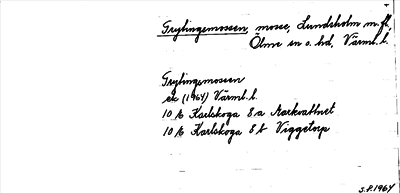 Trylingemossen, mosse, Lundsholm m.fl.,
Ölme sn o. hd, Värml. l.
Trylingemossen
ek (1964) Värml. l.
10 E Karlskoga 8 a Aarkvattnet
10 E Karlskoga 8 b Viggetorp
S.F. 1964